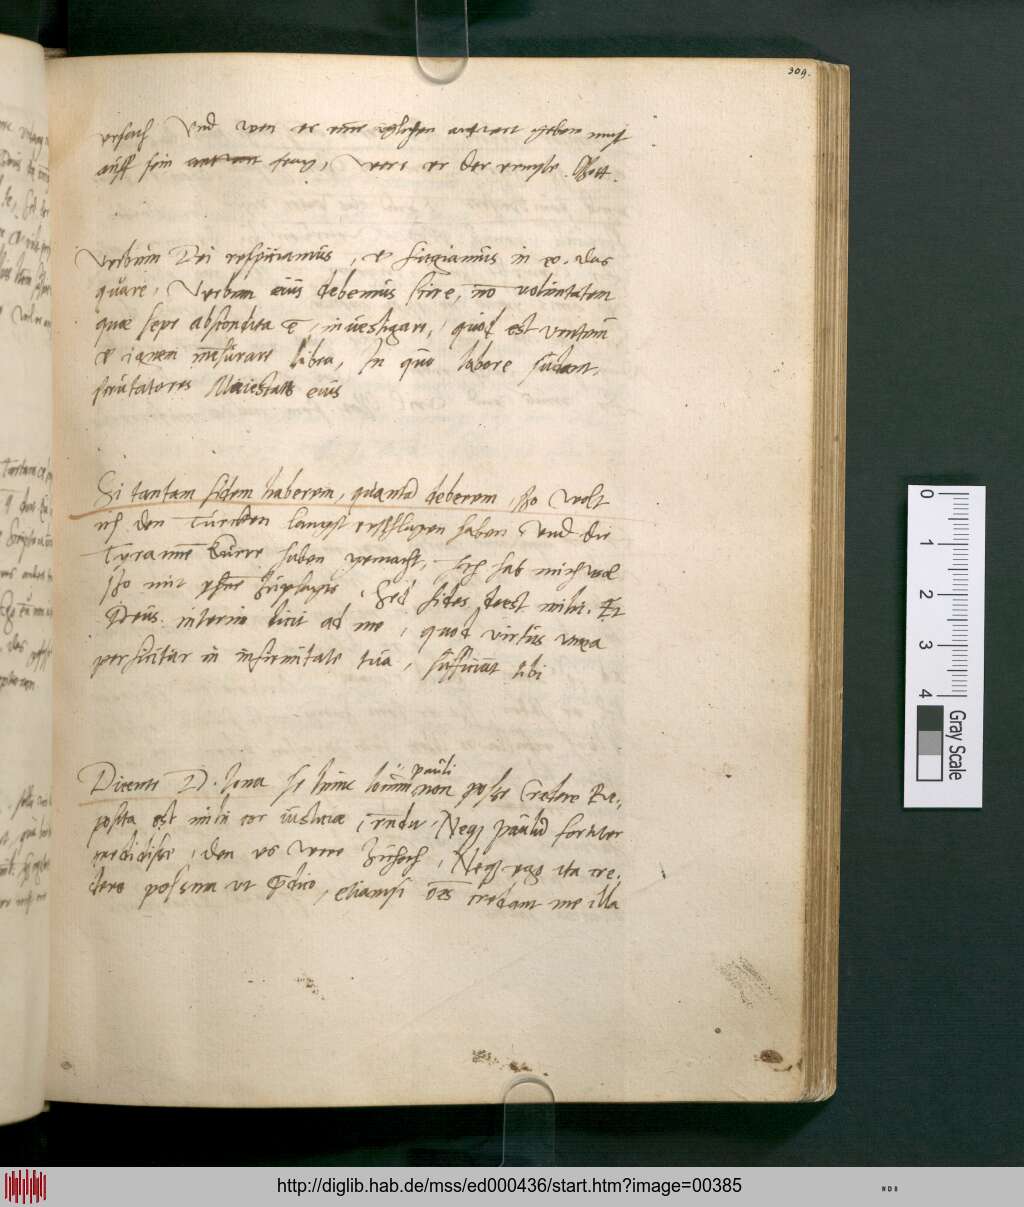 309.
ursach Und wen er eim iglichen antwort geben must
auff sein antwort frag, Were er der ermste Gott.
Verbum Dei respiciamus, et fugiamus in eo. das
quare, Verbum eius debemus scire, nō voluntatem
quae sepe abscondita ē, investigare, quod est ventum
et ignem mēsurare libra, In quo labore sudant
scrutatores Maiestatis eius
Si tantam fidem haberem, quantā deberem, sso wolt
ich den Turcken langst erschlagen haben und die
Tyranne kurre haben gemacht, Ich hab mich wol
sso mit yhne zuplagt. Sed fides deest mihi. Et
Deus interim dicit ad me, quod virtus mea
perficitur in infirmitate tua, sufficiat tibi
Dicente D. Jona se hunc locum pauli non posse credere Re,
posita est mihi cor. iustitiae, Credu, Neqȝ paulū fortiter
credidisse, den es were zuhoch, Neqȝ ego ita cre,
dere possum ut p̄dico, etiamsi oēs credant me illa
0 1 2 3 4
Gray Scale
http://diglib.hab.de/mss/ed000436/start.htm?image=00385